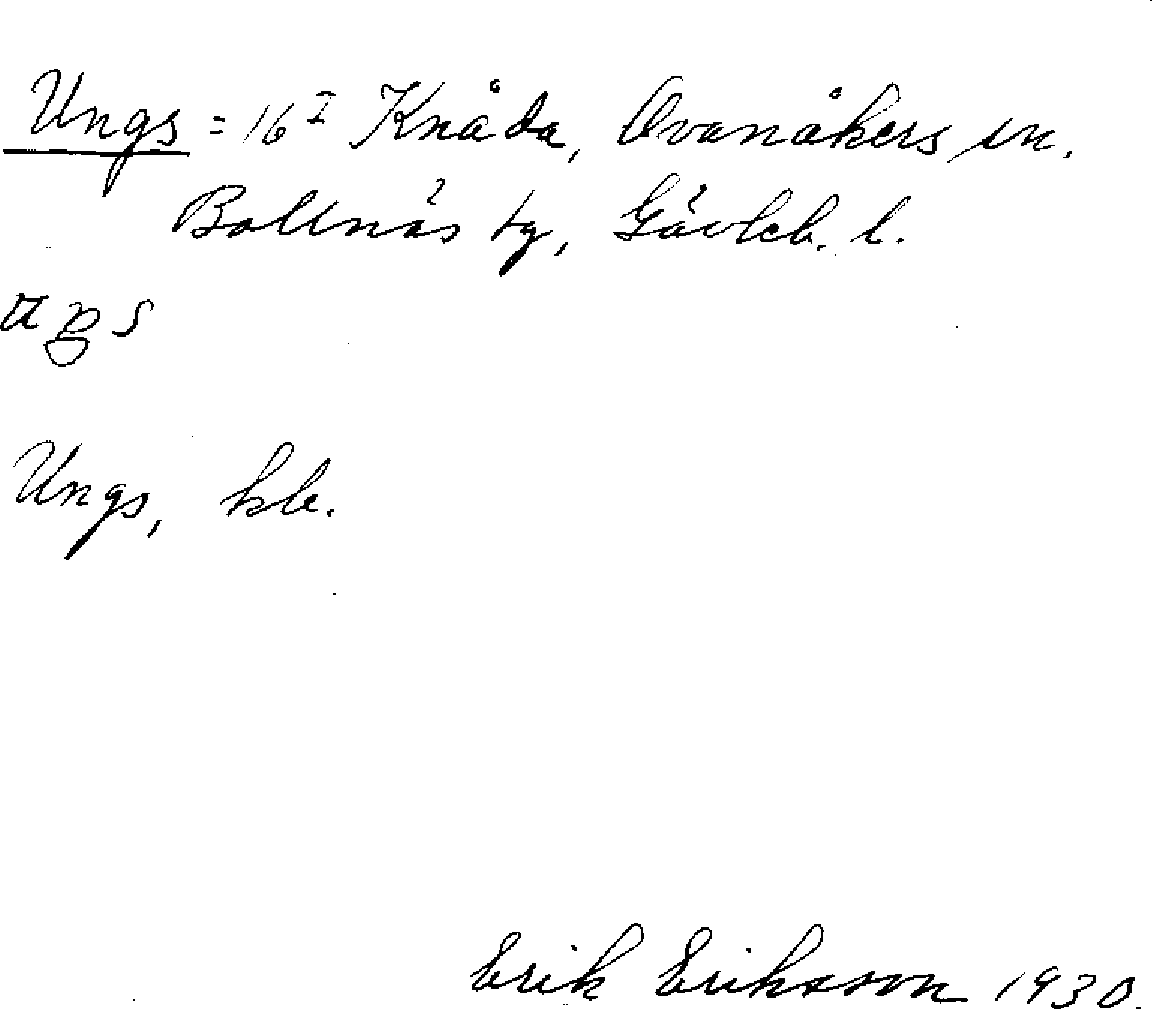 Ungs = 16 I Knåda, Ovanåkers sn.
Bollnäs tg, Gävleb. l.
Ungs, hle.
Erik Eriksson 1930.